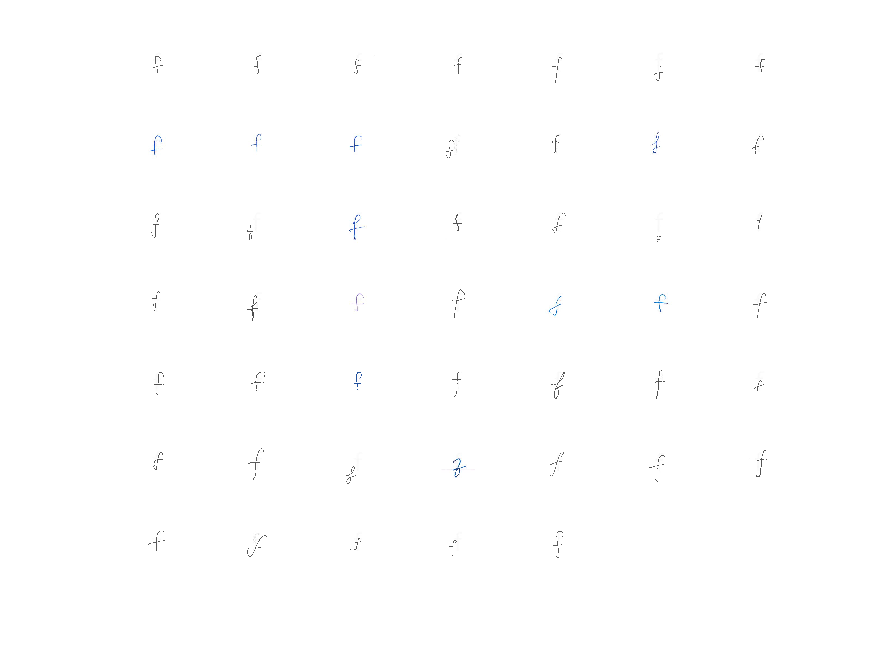 f f f f f f f
f f f f f f f
f f f f f f f
f f f f f f f
f f f f f f f
f f f f f f f
f f f f f